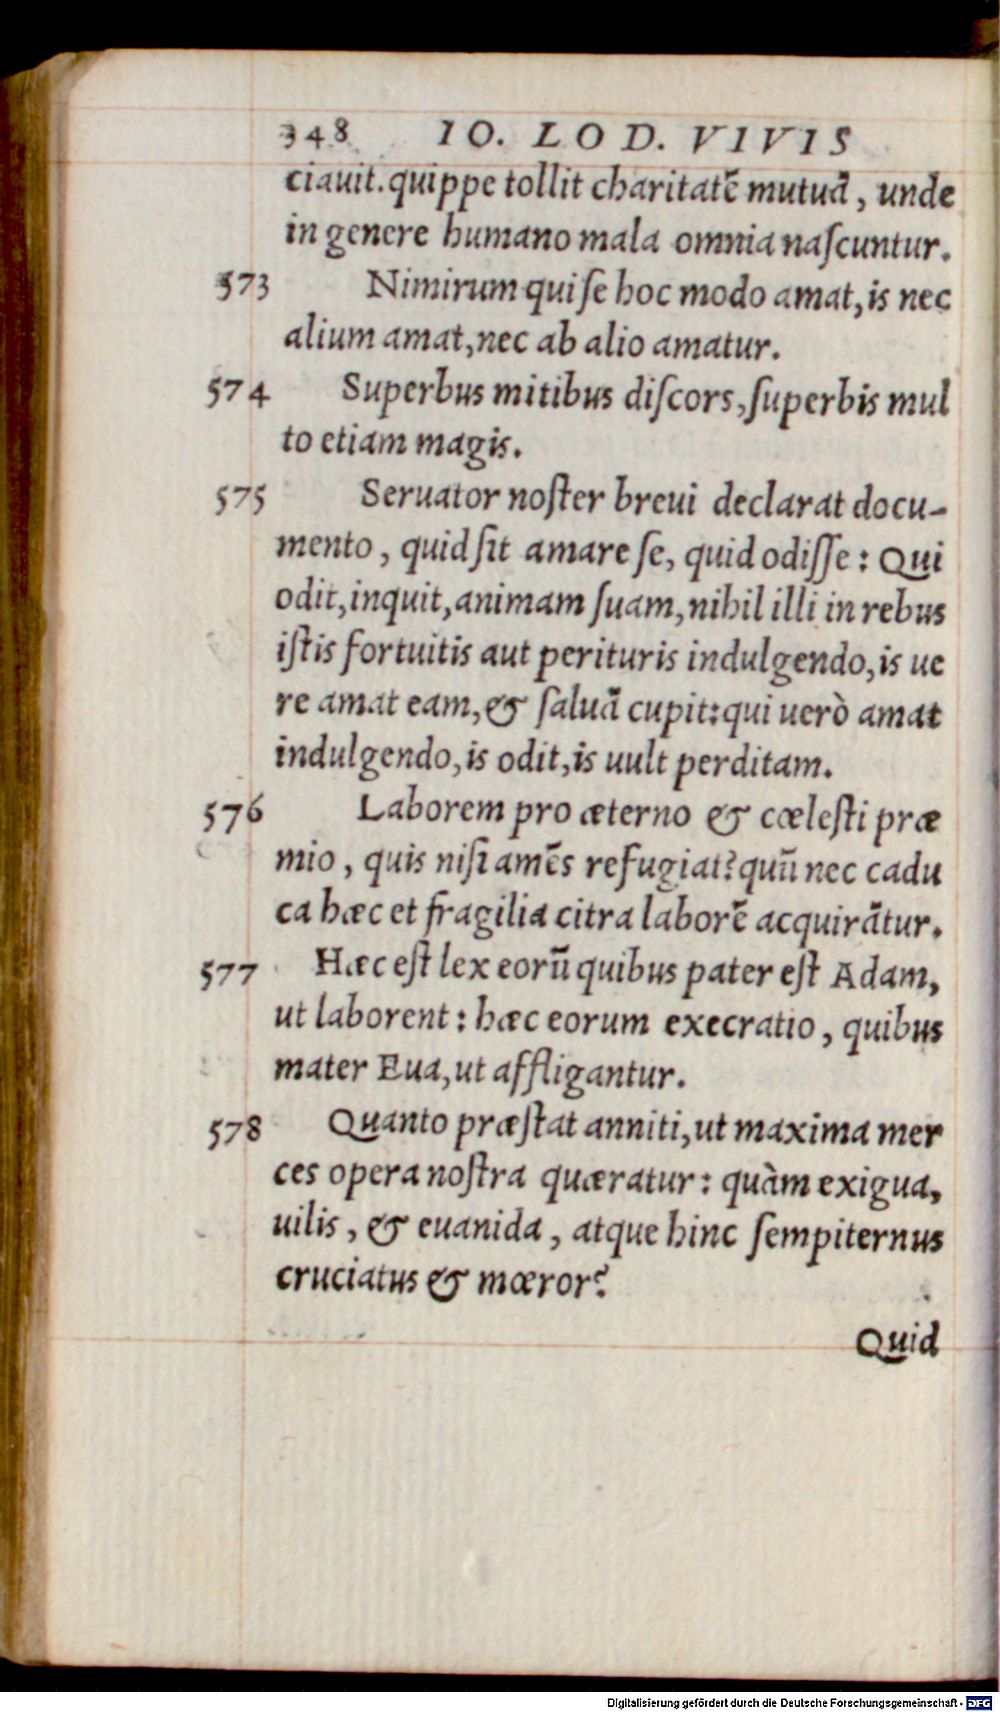 348 IO. LOD. VIVIS
ciauit. quippe tollit charitatē mutuã, unde
in genere humano mala omnia naſcuntur.
573 Nimirum qui ſe hoc modo amat, is nec
alium amat, nec ab alio amatur.
574 Superbus mitibus diſcors, ſuperbis mul
to etiam magis.
575 Seruator noſter breui declarat docu-
mento, quid ſit amare ſe, quid odiſſe: Qui
odit, inquit, animam ſuam, nihil illi in rebus
iſtis fortuitis aut perituris indulgendo, is ue
re amat eam, & ſaluã cupit: qui uerò amat
indulgendo, is odit, is uult perditam.
576 Laborem pro æterno & cœleſti præ
mio, quis niſi amēs refugiat? quū nec cadu
ca hæc et fragilia citra laborē acquirãtur.
577 Hæc eſt lex eorū quibus pater eſt Adam,
ut laborent: hæc eorum execratio, quibus
mater Eua, ut affligantur.
578 Quanto præſtat anniti, ut maxima mer
ces opera noſtra quæratur: quàm exigua,
uilis, & euanida, atque hinc ſempiternus
cruciatus & mœror?
Quid
Digitalisierung gefördert durch die Deutsche Forschungsgemeinschaft - DFG